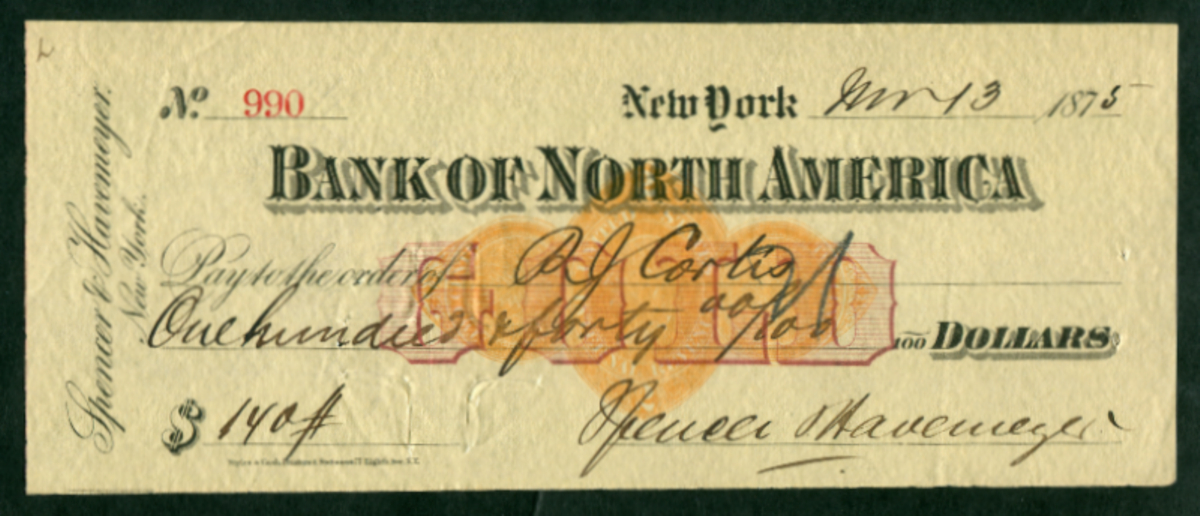 Spencer & Havemeyer.
New York.
No. 990
New York Nov 13 1875
BANK OF NORTH AMERICA
Pay to the order of B J Cortis
One hundred & forty 00/100
100 DOLLARS
$ 140 #
Spencer & Havemeyer